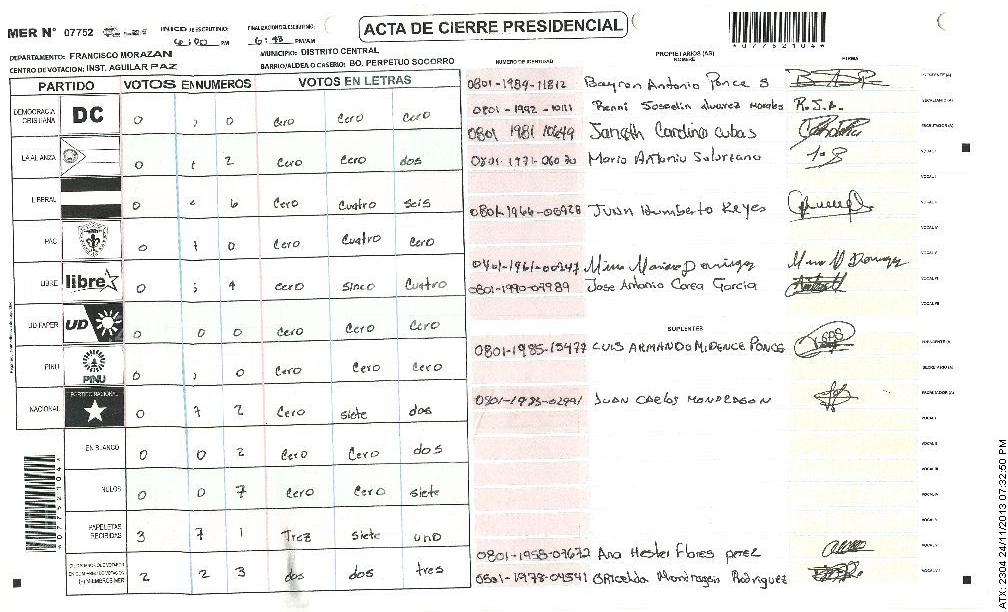 MER N° 07752
INICIO DE ESCRUTINIO: 6:00 PM
FINALIZACION DEL ESCRUTINIO: 6:48 PM/AM
ACTA DE CIERRE PRESIDENCIAL
*07752104*
DEPARTAMENTO: FRANCISCO MORAZAN
MUNICIPIO: DISTRITO CENTRAL
CENTRO DE VOTACION: INST. AGUILAR PAZ
BARRIO/ALDEA O CASERIO: BO. PERPETUO SOCORRO
PARTIDO VOTOS EN NUMEROS VOTOS EN LETRAS
DEMOCRACIA CRISTIANA DC 0 0 Cero Cero Cero
LA ALIANZA 0 2 Cero Cero dos
LIBERAL 0 6 Cero Cuatro Seis
PAC 0 0 Cero Cuatro Cero
LIBRE libre 0 4 Cero Sinco Cuatro
UD FAPER UD 0 0 0 Cero Cero Cero
PINU PINU 0 0 Cero Cero Cero
NACIONAL PARTIDO NACIONAL 0 7 2 Cero siete dos
EN BLANCO 0 0 2 Cero Cero dos
NULOS 0 0 7 Cero Cero siete
PAPELETAS RECIBIDAS 3 7 1 Trez Siete uno
2 2 3 dos dos tres
NUMERO DE IDENTIDAD PROPIETARIOS (AS) NOMBRE FIRMA
0801-1989-11812 Bayron Antonio Ponce S
0801-1992-10111 Alvarez Morales R.J.A.
0801 1981 10649 Janeth Carolina Cubas
0801-1971-06030 Mario Antonio Solorzano
0801-1966-00928 Juan Humberto Reyes
0401-1961-00247
0801-1990-07989 Jose Antonio Corea Garcia
SUPLENTES
0801-1985-15477 LUIS ARMANDO MIDENCE PONCE
0801-1983-02991 JUAN CARLOS MONDRAGON
0801-1958-07672 Ana Hester Flores perez
0801-1978-04541 Gricelda Mondragon Rodriguez
ATX: 2304 24/11/2013 07:32:50 PM